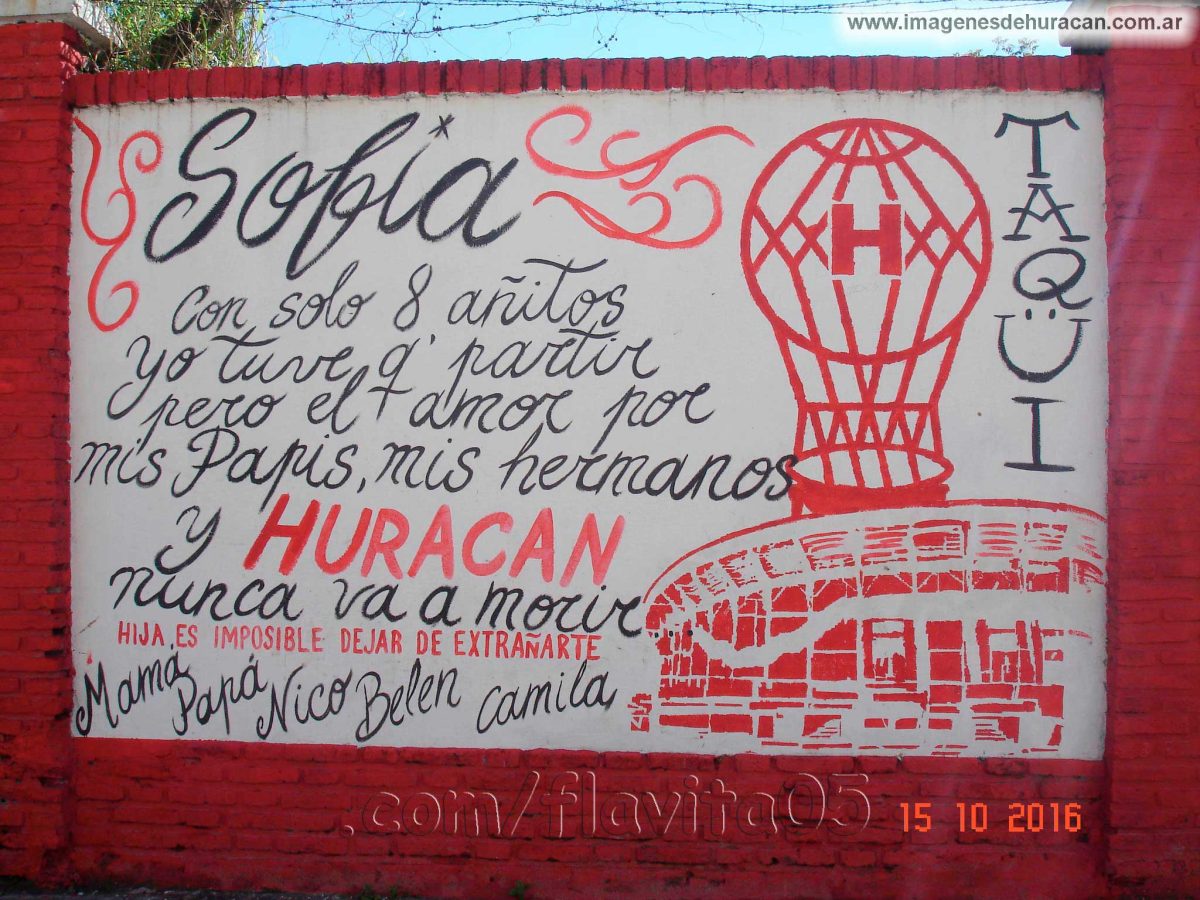 www.imagenesdehuracan.com.ar
Sofia
H
TAQÜI
con solo 8 añitos
yo tuve q' partir
pero el + amor por
mis Papis, mis hermanos
y HURACAN
nunca va a morir
HIJA, ES IMPOSIBLE DEJAR DE EXTRAÑARTE
Mamá Papá Nico Belen Camila
.com/flavita05
15 10 2016